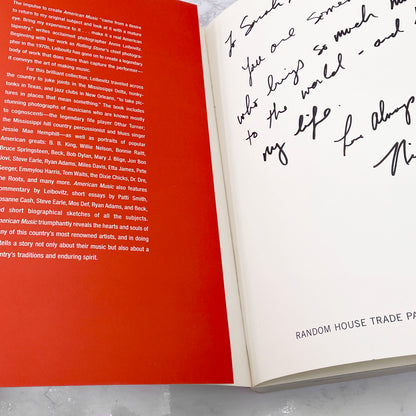 The impulse to create American Music "came from a desire
to return to my original subject and look at it with a mature
eye. Bring my experience to it . . . make it a real American
tapestry," writes acclaimed photographer Annie Leibovitz.
Beginning with her work as Rolling Stone's chief photogra-
pher in the 1970s, Leibovitz has gone on to create a towering
body of work that does more than capture the performer—
it conveys the art of making music.
For this brilliant collection, Leibovitz traveled across
the country to juke joints in the Mississippi Delta, honky-
tonks in Texas, and jazz clubs in New Orleans, "to take pic-
tures in places that mean something." The book includes
stunning photographs of musicians who are known mostly
to cognoscenti—the legendary fife player Other Turner,
the Mississippi hill country percussionist and blues singer
Jessie Mae Hemphill—as well as portraits of popular
American greats: B. B. King, Willie Nelson, Bonnie Raitt,
Bruce Springsteen, Beck, Bob Dylan, Mary J. Blige, Jon Bon
Jovi, Steve Earle, Ryan Adams, Miles Davis, Etta James, Pete
Seeger, Emmylou Harris, Tom Waits, the Dixie Chicks, Dr. Dre,
The Roots, and many more. American Music also features
commentary by Leibovitz, short essays by Patti Smith,
osanne Cash, Steve Earle, Mos Def, Ryan Adams, and Beck,
d short biographical sketches of all the subjects.
merican Music triumphantly reveals the hearts and souls of
any of this country's most renowned artists, and in doing
tells a story not only about their music but also about a
ntry's traditions and enduring spirit.
To Sarah
You are some
who brings so much
to the world - and
my life.
Love Always
Ni
RANDOM HOUSE TRADE PA